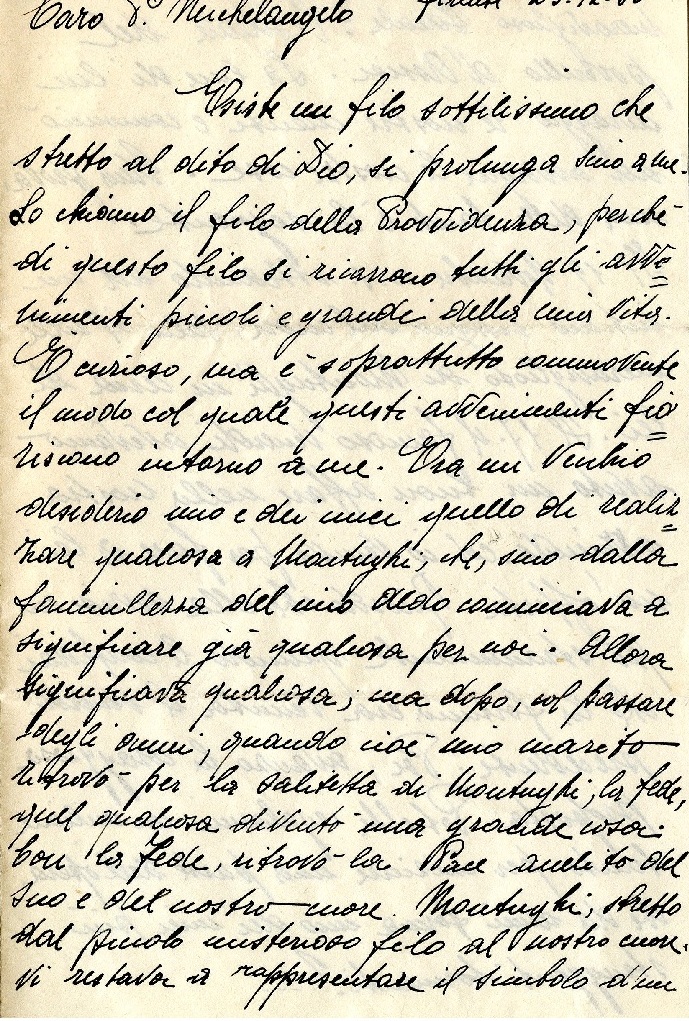 Caro P. Michelangelo Firenze
Esiste un filo sottilissimo che
stretto al dito di Dio, si prolunga sino a me.
Lo chiamo il filo della Provvidenza, perché
di questo filo si ricamano tutti gli avve=
nimenti piccoli e grandi della mia vita.
È curioso, ma è soprattutto commovente
il modo col quale questi avvenimenti fio=
riscono intorno a me. Era un vecchio
desiderio mio e dei miei quello di realiz=
zare qualcosa a Montughi, che, sino dalla
fanciullezza del mio Aldo cominciava a
significare già qualcosa per noi. Allora
significava qualcosa; ma dopo, col passare
degli anni, quando cioè mio marito
ritrovò per la salitetta di Montughi, la fede,
quel qualcosa diventò una grande cosa.
Con la Fede, ritrovò la Pace anelito del
suo e del nostro cuore. Montughi, stretto
dal piccolo misterioso filo al nostro cuore.
Vi restava a rappresentare il simbolo d'un